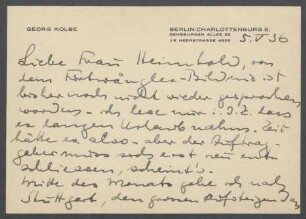 GEORG KOLBE
BERLIN-CHARLOTTENBURG 9.
SENSBURGER ALLEE 25
J 9 HEERSTRASSE 4036
5. V 36
Liebe Frau Heimbold, von
dem Furtwängler-Bildnis ist
bisher noch nicht wieder gesprochen
worden - ich lese nur dass
er langen Urlaub nahm. Zeit
hätte er also - aber der Auftrag-
geber muss sich erst neu ent-
schliessen, scheint's.
Mitte des Monats gehe ich nach
Stuttgart, den grossen